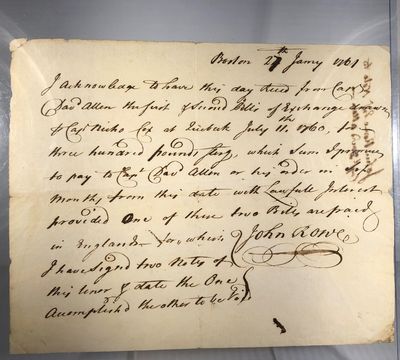 Boston 27th Janry 1761
I Acknowledge to have this day Reced from Capt
Davd Allen the first & Second Bills of Exchange drawn
Capt Nichs Cox at Quebeck July 11th 1760, for
three hundred pounds sterg, which Sum I promise
to pay to Capt Davd Allen or his order in
months from this date with Lawfull Interest
provided One of these two Bills are paid
in England for which
I have Signed two Notes of
this tenor & date the One
Accomplish'd the other to be Void
John Rowe